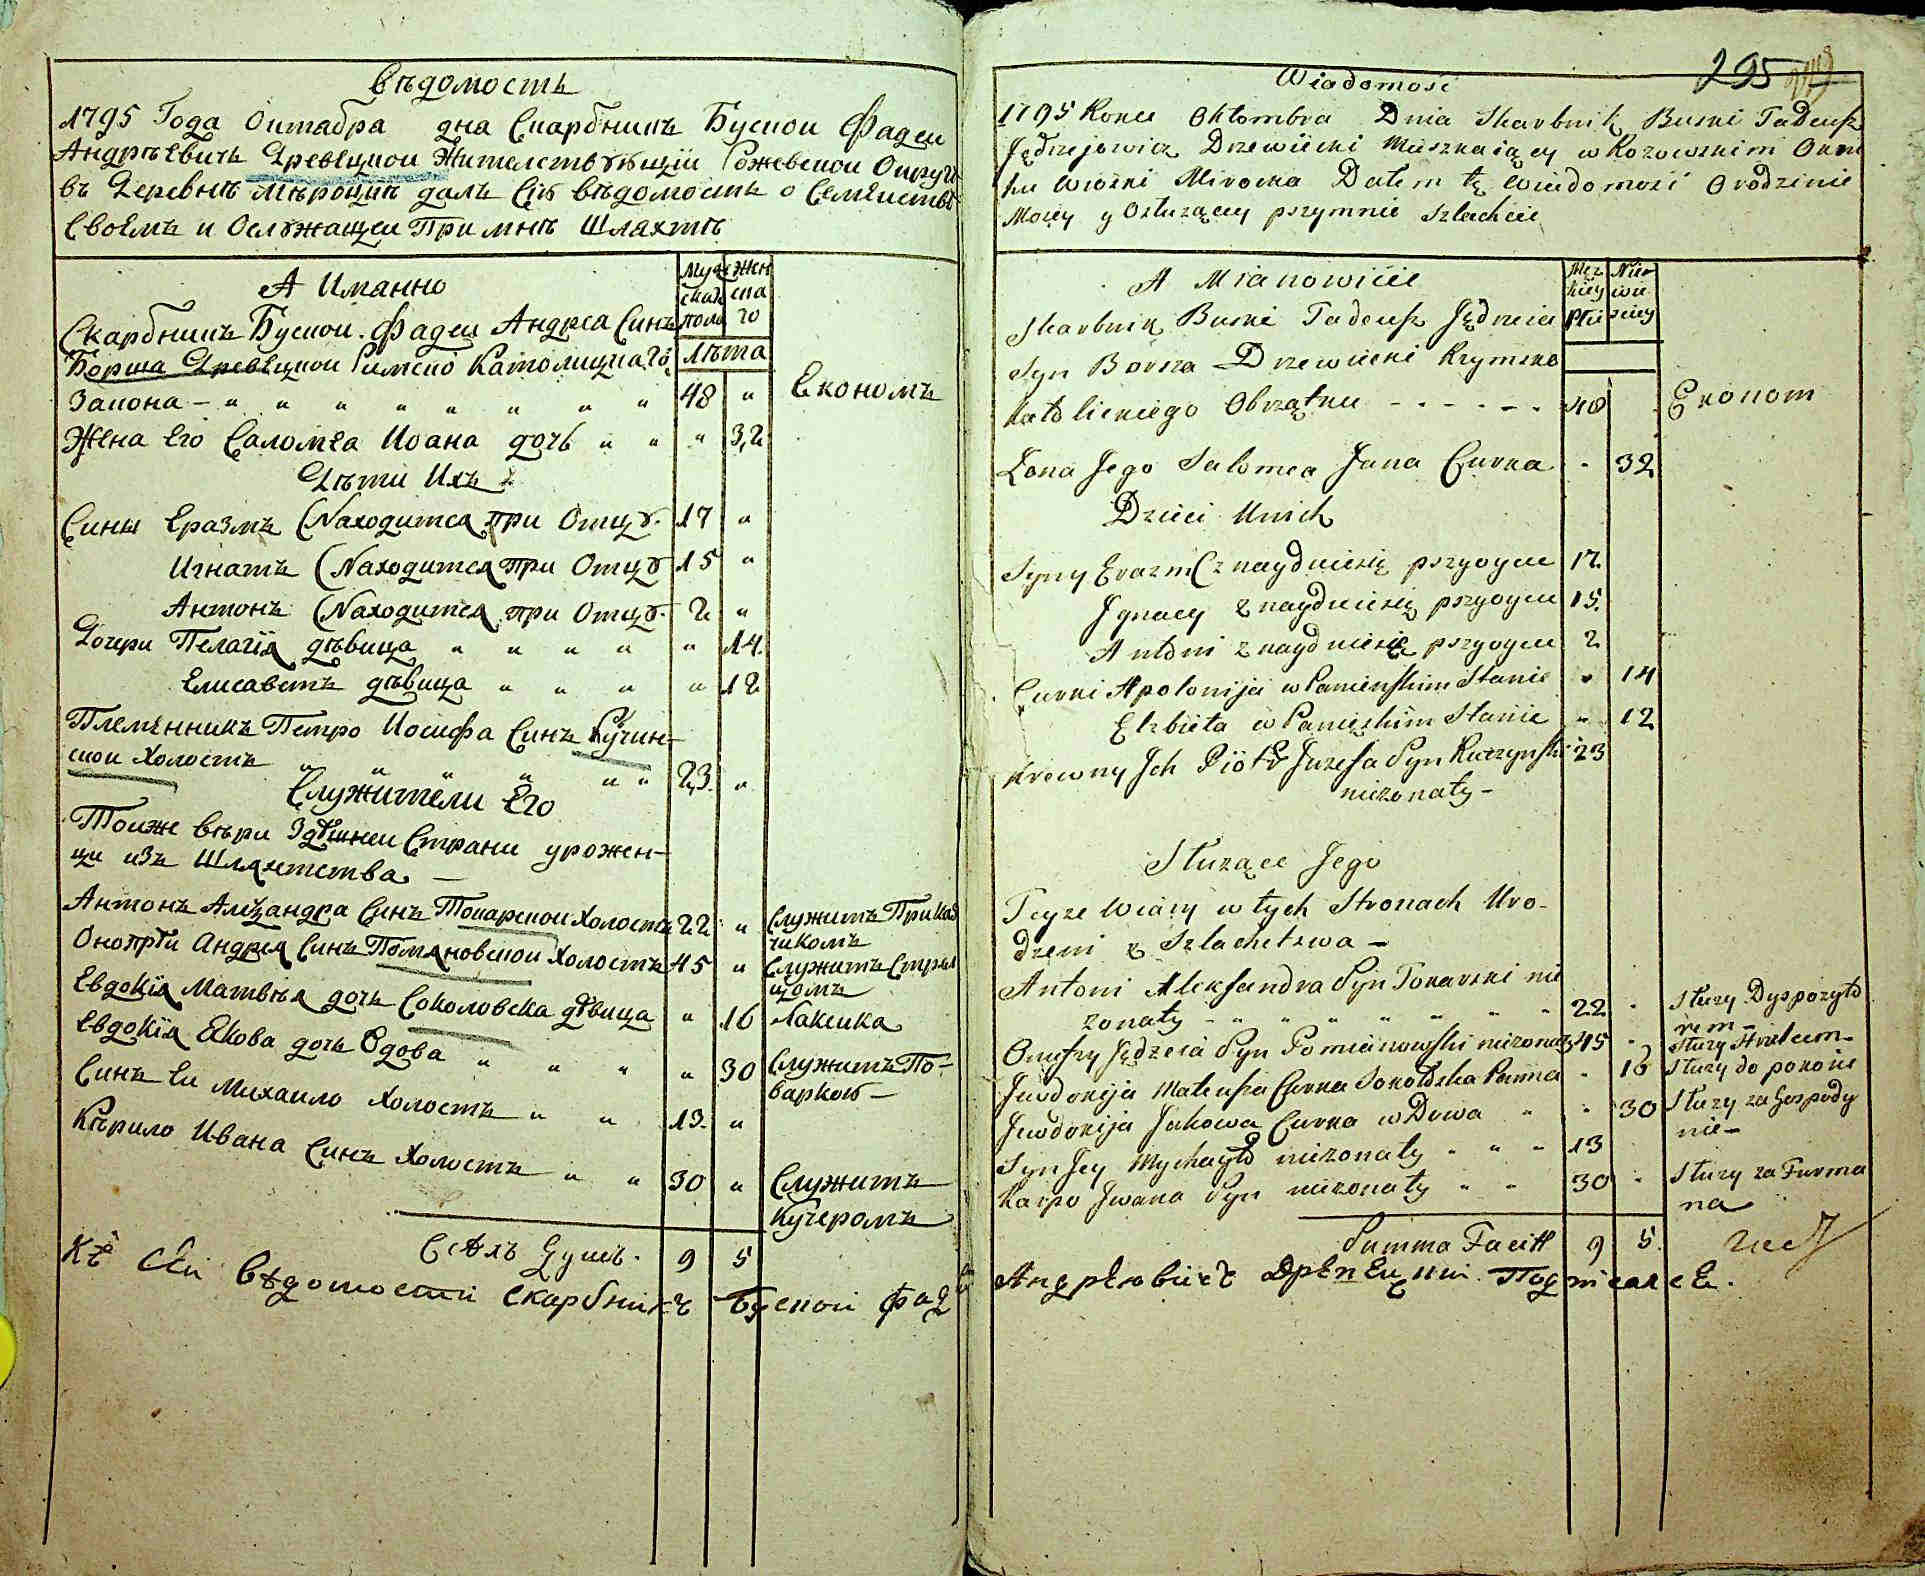 Вѣдомость
1795 Года Октабра дна Скарбникъ Буской Фадеи
Андрѣевичъ Древецкои Жителствующїи Рожевскои Округи
въ Деревнѣ Мѣрощиѣ далъ Сїю вѣдомость о Семеиствѣ
Своемъ и Ослужащеи При мнѣ Шляхтѣ
А Иманно
Муже скаго пола
Жен ска го
Лѣта
Скарбникъ Бускои Фадеи Андреа Синъ
Борша Древецкои Римско Католицкаго
Закона - " " " " " " " " 48 " Економъ
Жена Его Саломеа Иоана дочь " " " 32
Дѣти Ихъ
Сины Еразмъ (Находится при Отцу. 17 "
Игнатъ (Находится при Отцу 15 "
Антонъ (Находится при Отцу. 2 "
Дочери Пелагїя дѣвица " " " " " 14.
Елисаветъ дѣвица " " " " 12
Племѣнникъ Петро Иосифа Синъ Кучин-
скои Холостъ " " " " " " 23. "
Служители Его
Тоиже вѣри Здѣшнеи Страни урожен-
ци изъ Шляхтства —
Антонъ Алеѯандра Синъ Токарскои Холостъ 22 " Служитъ Прикаѕ
чикомъ
Онопрїи Андрея Синъ Помяновскои Холостъ 45 " Служитъ Стрел
цомъ
Евдокїя Матвѣя дочь Соколовска дѣвица " 16 Лакеика
Евдокїя Якова дочь Вдова " " " " 30 Служитъ По-
варкою —
Синъ Еи Михаило Холостъ " " 13. "
Кѣрило Ивана Синъ Холостъ " " 30 " Служитъ
Кучеромъ
Всѣхъ Душъ. 9 5
Къ Сеи Вѣдомости Скарбникъ Бускои Фад
295
Wiadomosc
1795 Roku Oktombra Dnia Skarbnik Buski Tadeusz
Jędrzejowicz Drzewiecki Mieszkaiący w Rozowskim Okrę
hu Wioski Mirocka Dałem tę Wiadomosc O rodzinie
Moiey y Osłuzącey przymnie Szlachcie
A Mianowicie
Męz kiey Płci
Niew iescey
Skarbnik Buski Tadeusz Jędrzeia
Syn Borsza Drzewiecki Rzymsko
Katolickiego Obrządku - - - - - - 48 Ekonom
Zona Jego Salomea Jana Curka - 32
Dzieci Onich
Syny Erazm (znayduiesię przyoycu 17
Jgnacy znayduiesię przyoycu 15.
Antoni znayduiesię przyoycu 2
Curki Apolonija w Panienskim Stanie " 14
Elzbieta w Panieskim Stanie " 12
Krewny Jch Piotr Juzefa Syn Kuczynski 23
niezonaty -
Słuzące Jego
Teyze Wiary w tych Stronach Uro-
dzeni z Szlachetswa -
Antoni Aleksandra Syn Tokarski nie
zonaty - " " " " " " " 22 - Słuzy Dyspozyto
rem -
Onufry Jędzeia Syn Pomianowski niezonaty 45 - Słuzy Strzelcem-
Jewdokija Mateusza Curka Sokołoska Panna - 16 Słuzy do pokoiu
Jewdokija Jakowa Curka wDowa " " 30 Słuzy za Gospody
nie -
Syn Jey Mychayło niezonaty " " " 13
Karpo Jwana Syn niezonaty " " 30 - Słuzy za Furma
na
Summa Facitt 9 5.
Андрѣовичъ Древецкии Подписалсе.